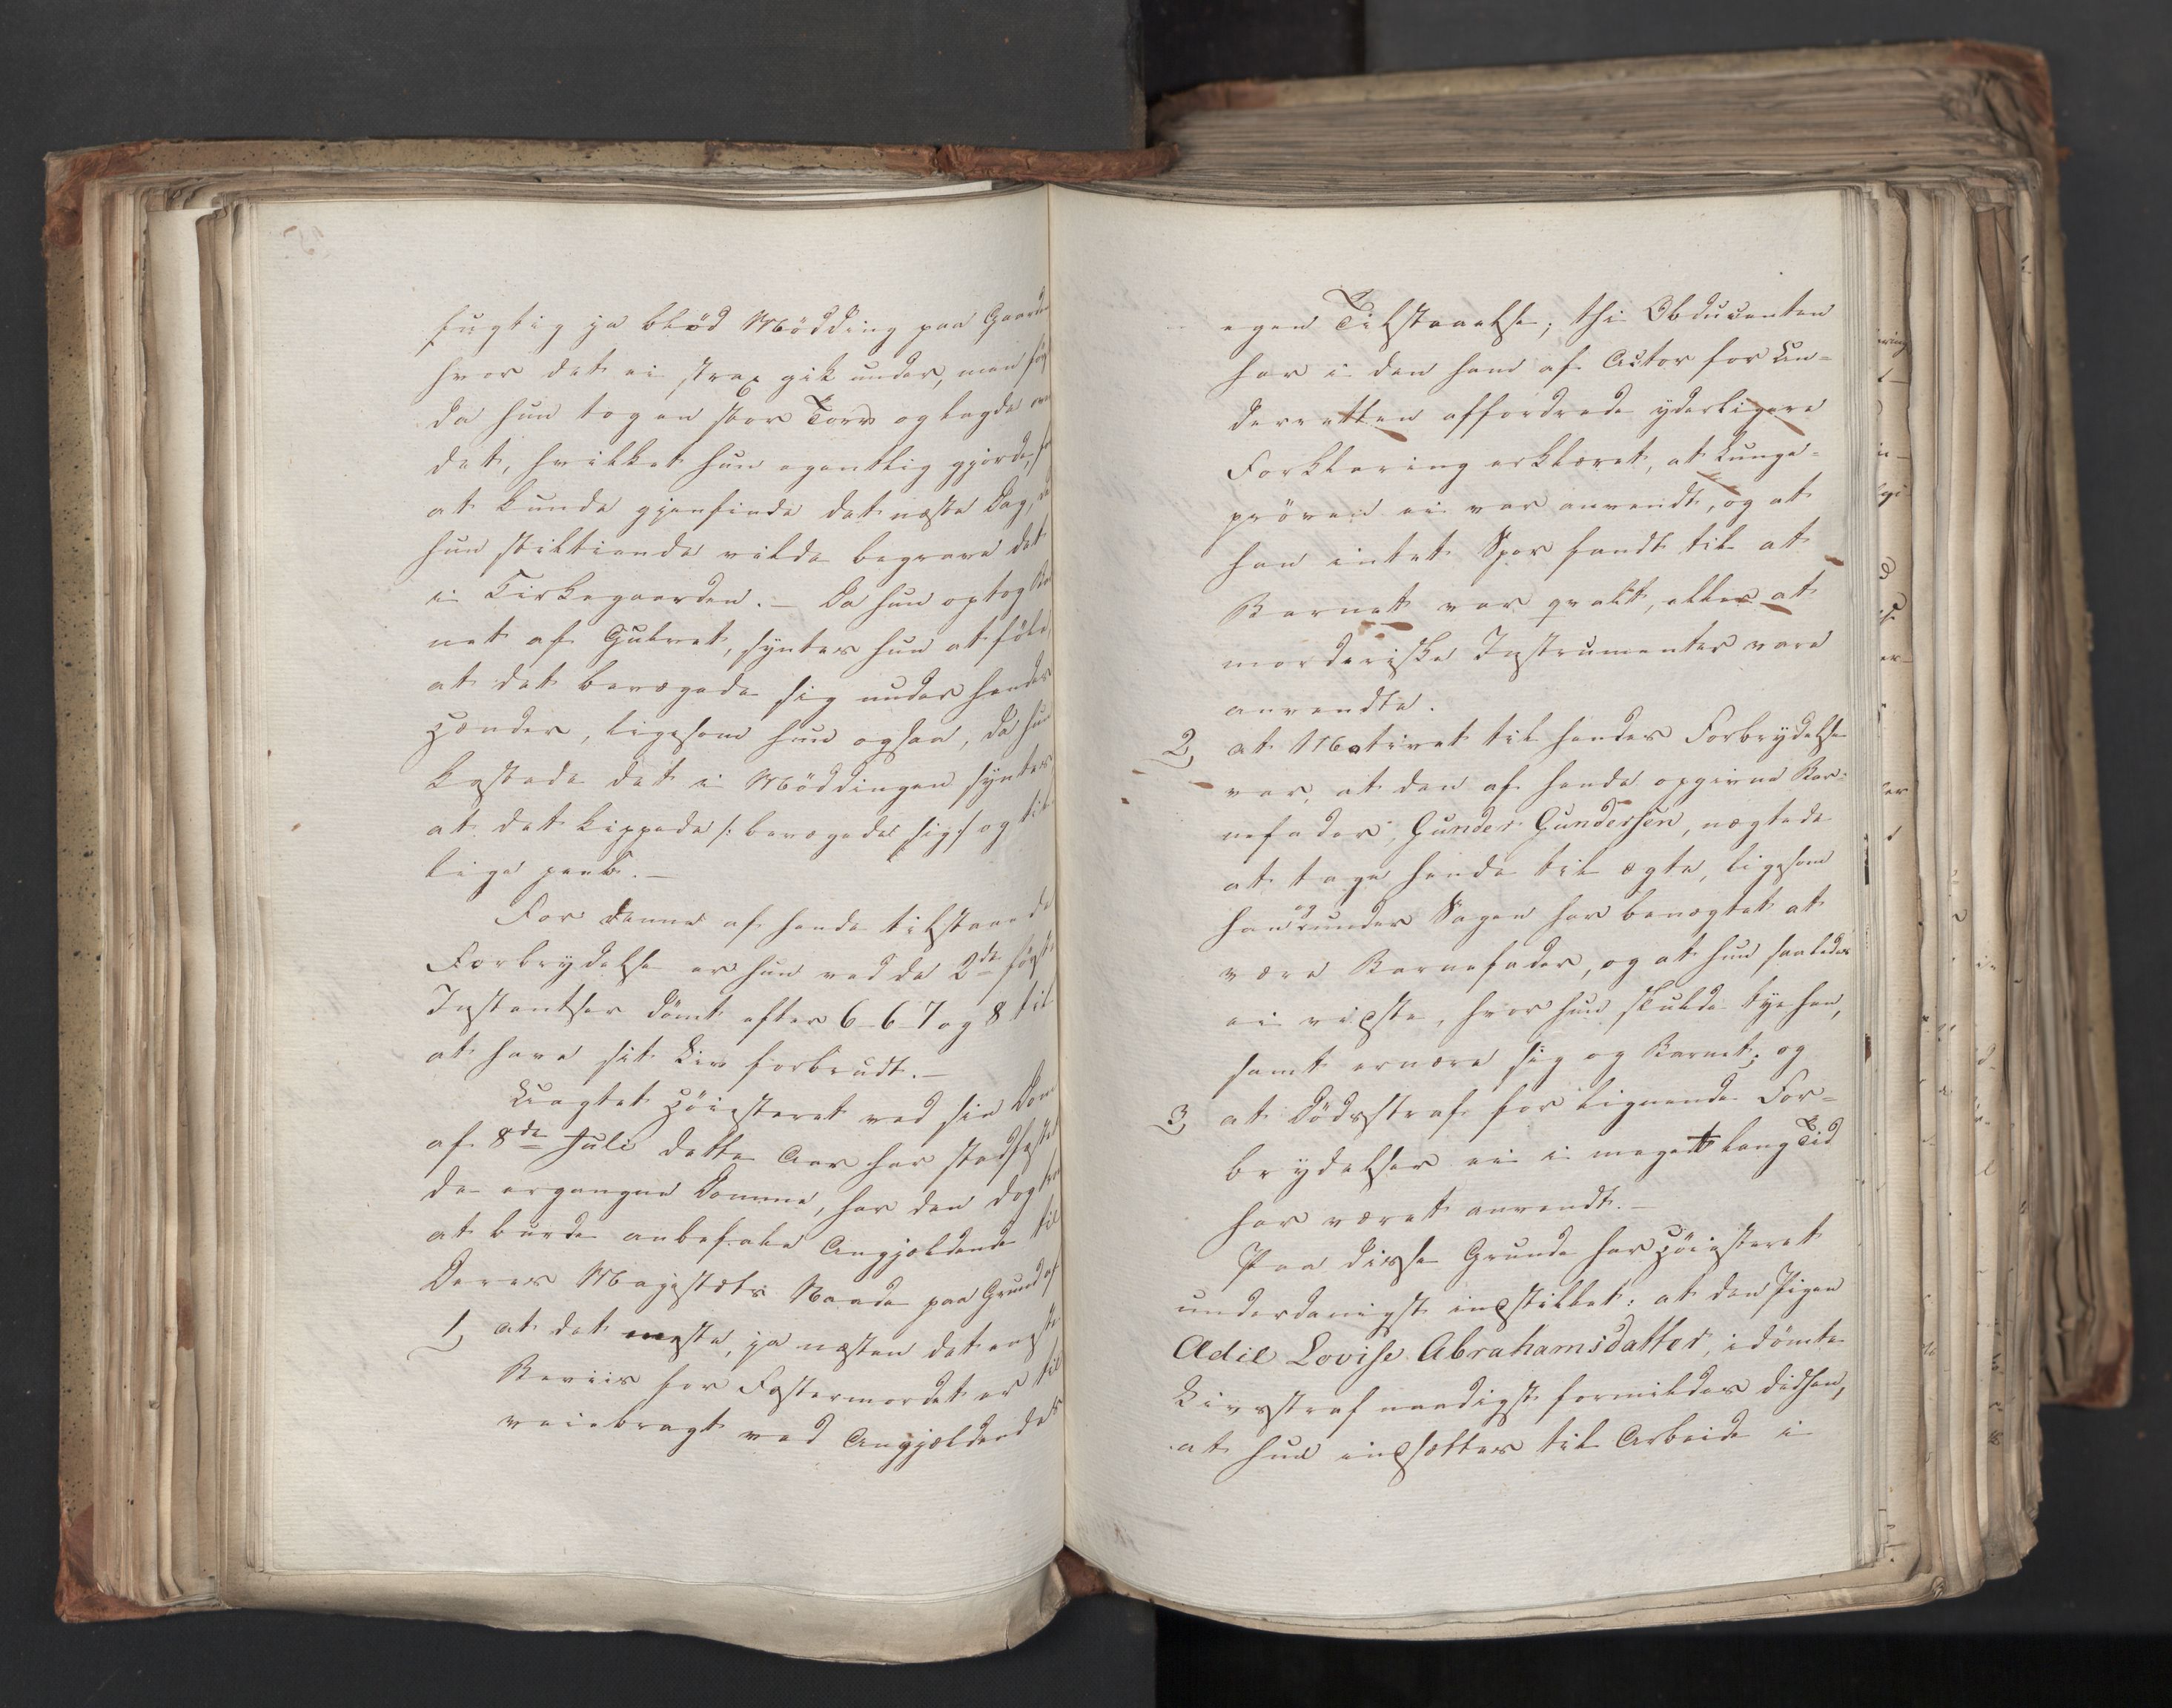 fugtig ja blød Mödding paa Gaarden
hvor det ei strax gik under, men før
da hun tog en stor Torv og lagde over
det, hvilket hun egentlig gjorde, for
at kunde gjenfinde det næste Dag, da
hun stiltiende vilde begrave det
i Kirkegaarden. – Da hun optog Bar
net af Gulvet, syntes hun at føle
at det bevægede sig under hendes
Hænder, ligesom hun ogsaa, da hun
kastede det i Möddingen syntes
at det kippede /: bevægede sig :/ og til
lige peeb. –
For denne af hende tilstaaede
Forbrydelse er hun ved de 2de første
Instantser dömt efter 6-6-7 og 8 til
at have sit Liv forbrudt. –
Uagtet Höiesteret ved sin Dom
af 8de Juli dette Aar har stadfæstet
de ergangne Domme, har den dog troet
at burde anbefale Angjældende til
Deres Majestæts Naade paa Grund af
1, at det meste, ja næsten det eneste
Beviis for Fostermordet er til
veiebragt ved Angjældendes
egen Tilstaaelse; thi Obducenten
har i den ham af Actor for Un=
derretten affordrede yderligere
Forklaring erklæret, at Lunge=
pröven ei var anvendt, og at
han intet Spor fandt til at
Barnet var qvalt, eller at
morderiske Instrumenter vare
anvendte.
2, at Motivet til hendes Forbrydelse
var, at den af hende opgivne Bar=
nefader, Gunder Gundersen, nægtede
at tage hende til ægte, ligesom
han og under Sagen har benægtet at
være Barnefader, og at hun saaledes
ei vidste, hvor hun skulde tye hen,
samt ernære sig og Barnet; og
3, at Dödsstraf for lignende For=
brydelser ei i meget lang Tid
har været anvendt. –
Paa disse Grunde har Höiesteret
underdanigst indstillet: at den Pigen
Adil Lovise Abrahamsdatter, idömte
Livsstraf naadigst formildes didhen,
at hun indsættes til Arbeide i